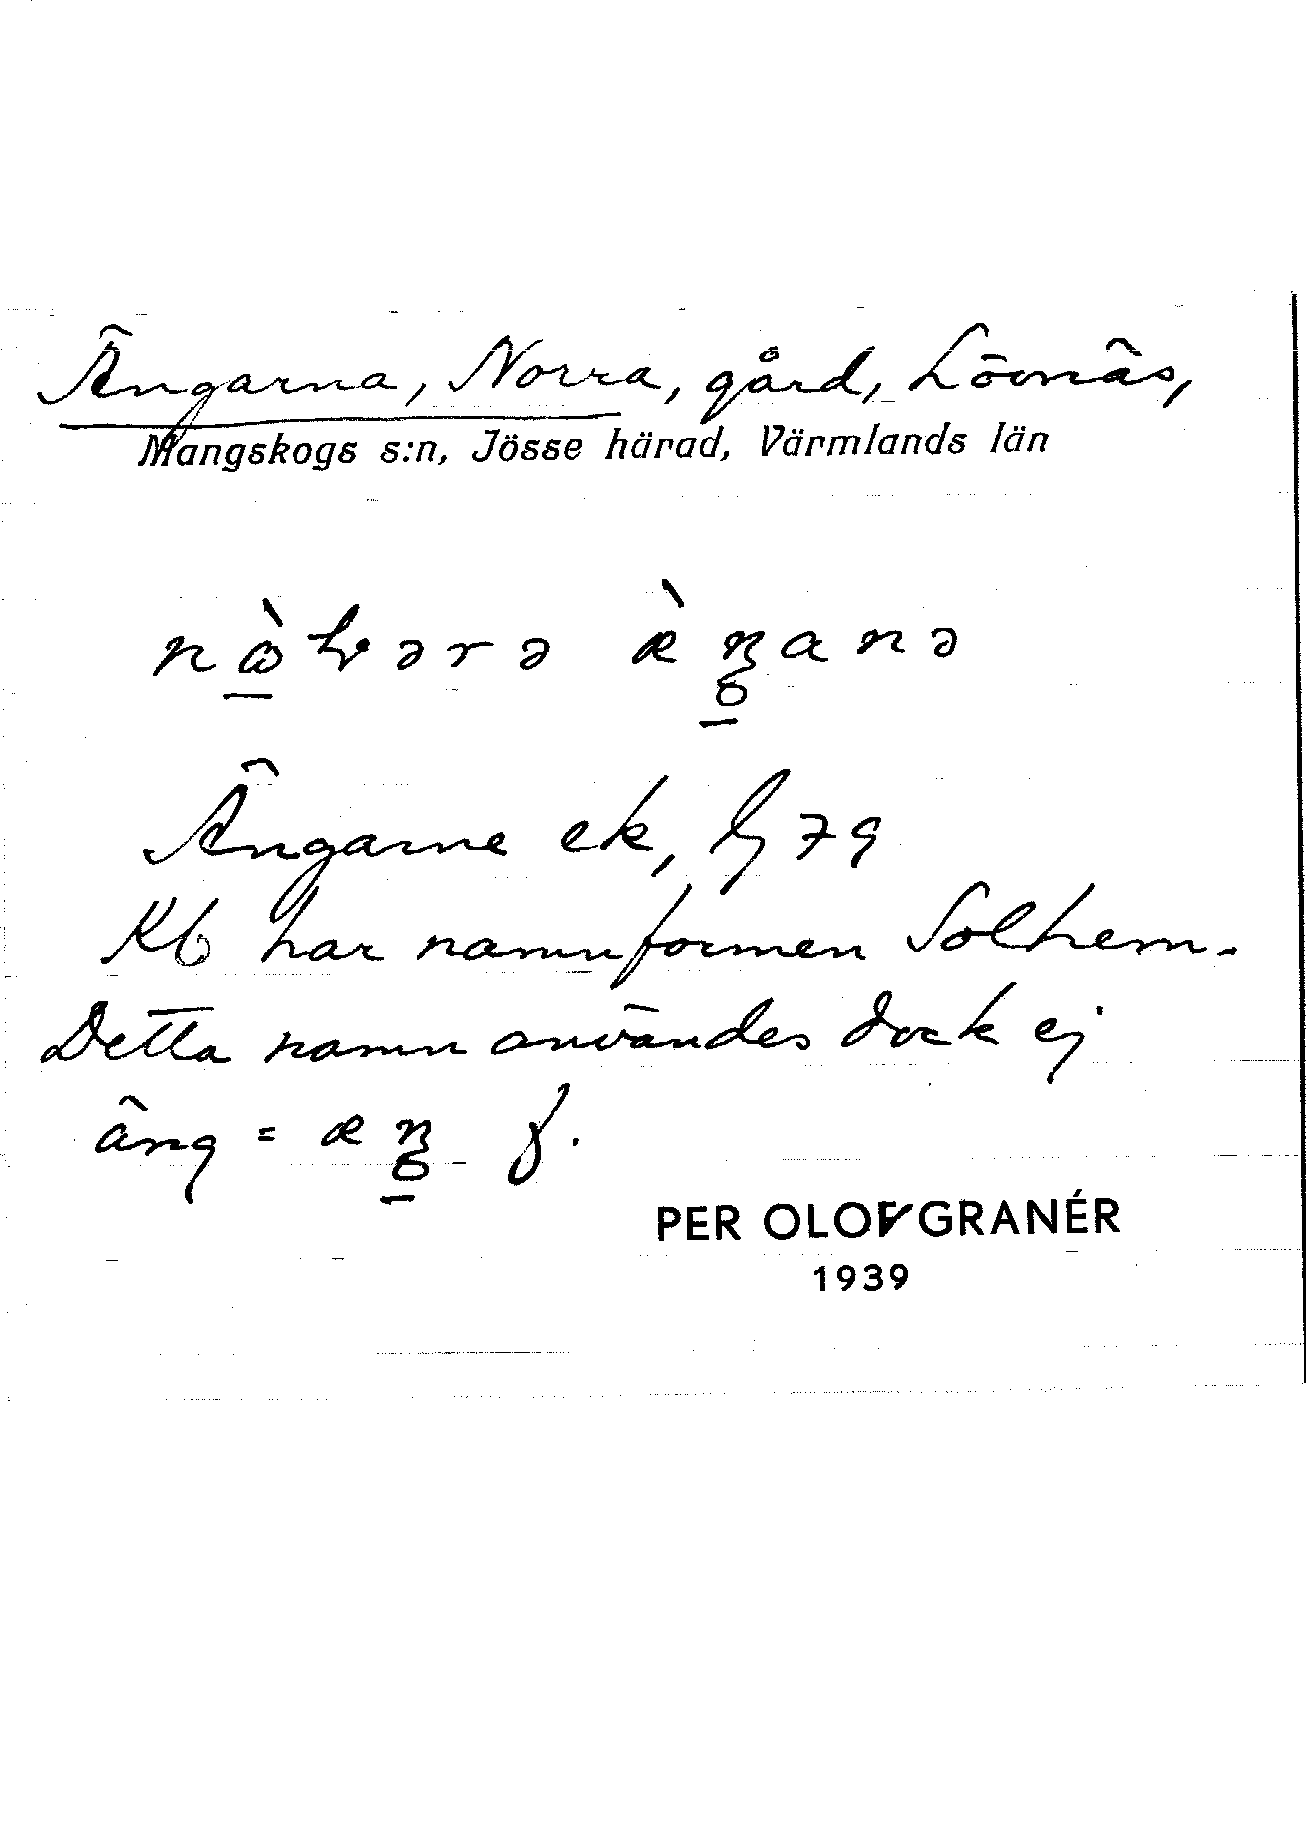 Ängarna, Norra, gård, Lövnäs,
Mangskogs s:n, Jösse härad, Värmlands län
Ängarne ek, 79
Kb har namnformen Solhem.
Detta namn användes dock ej
äng = f.
PER OLOF GRANÉR
1939